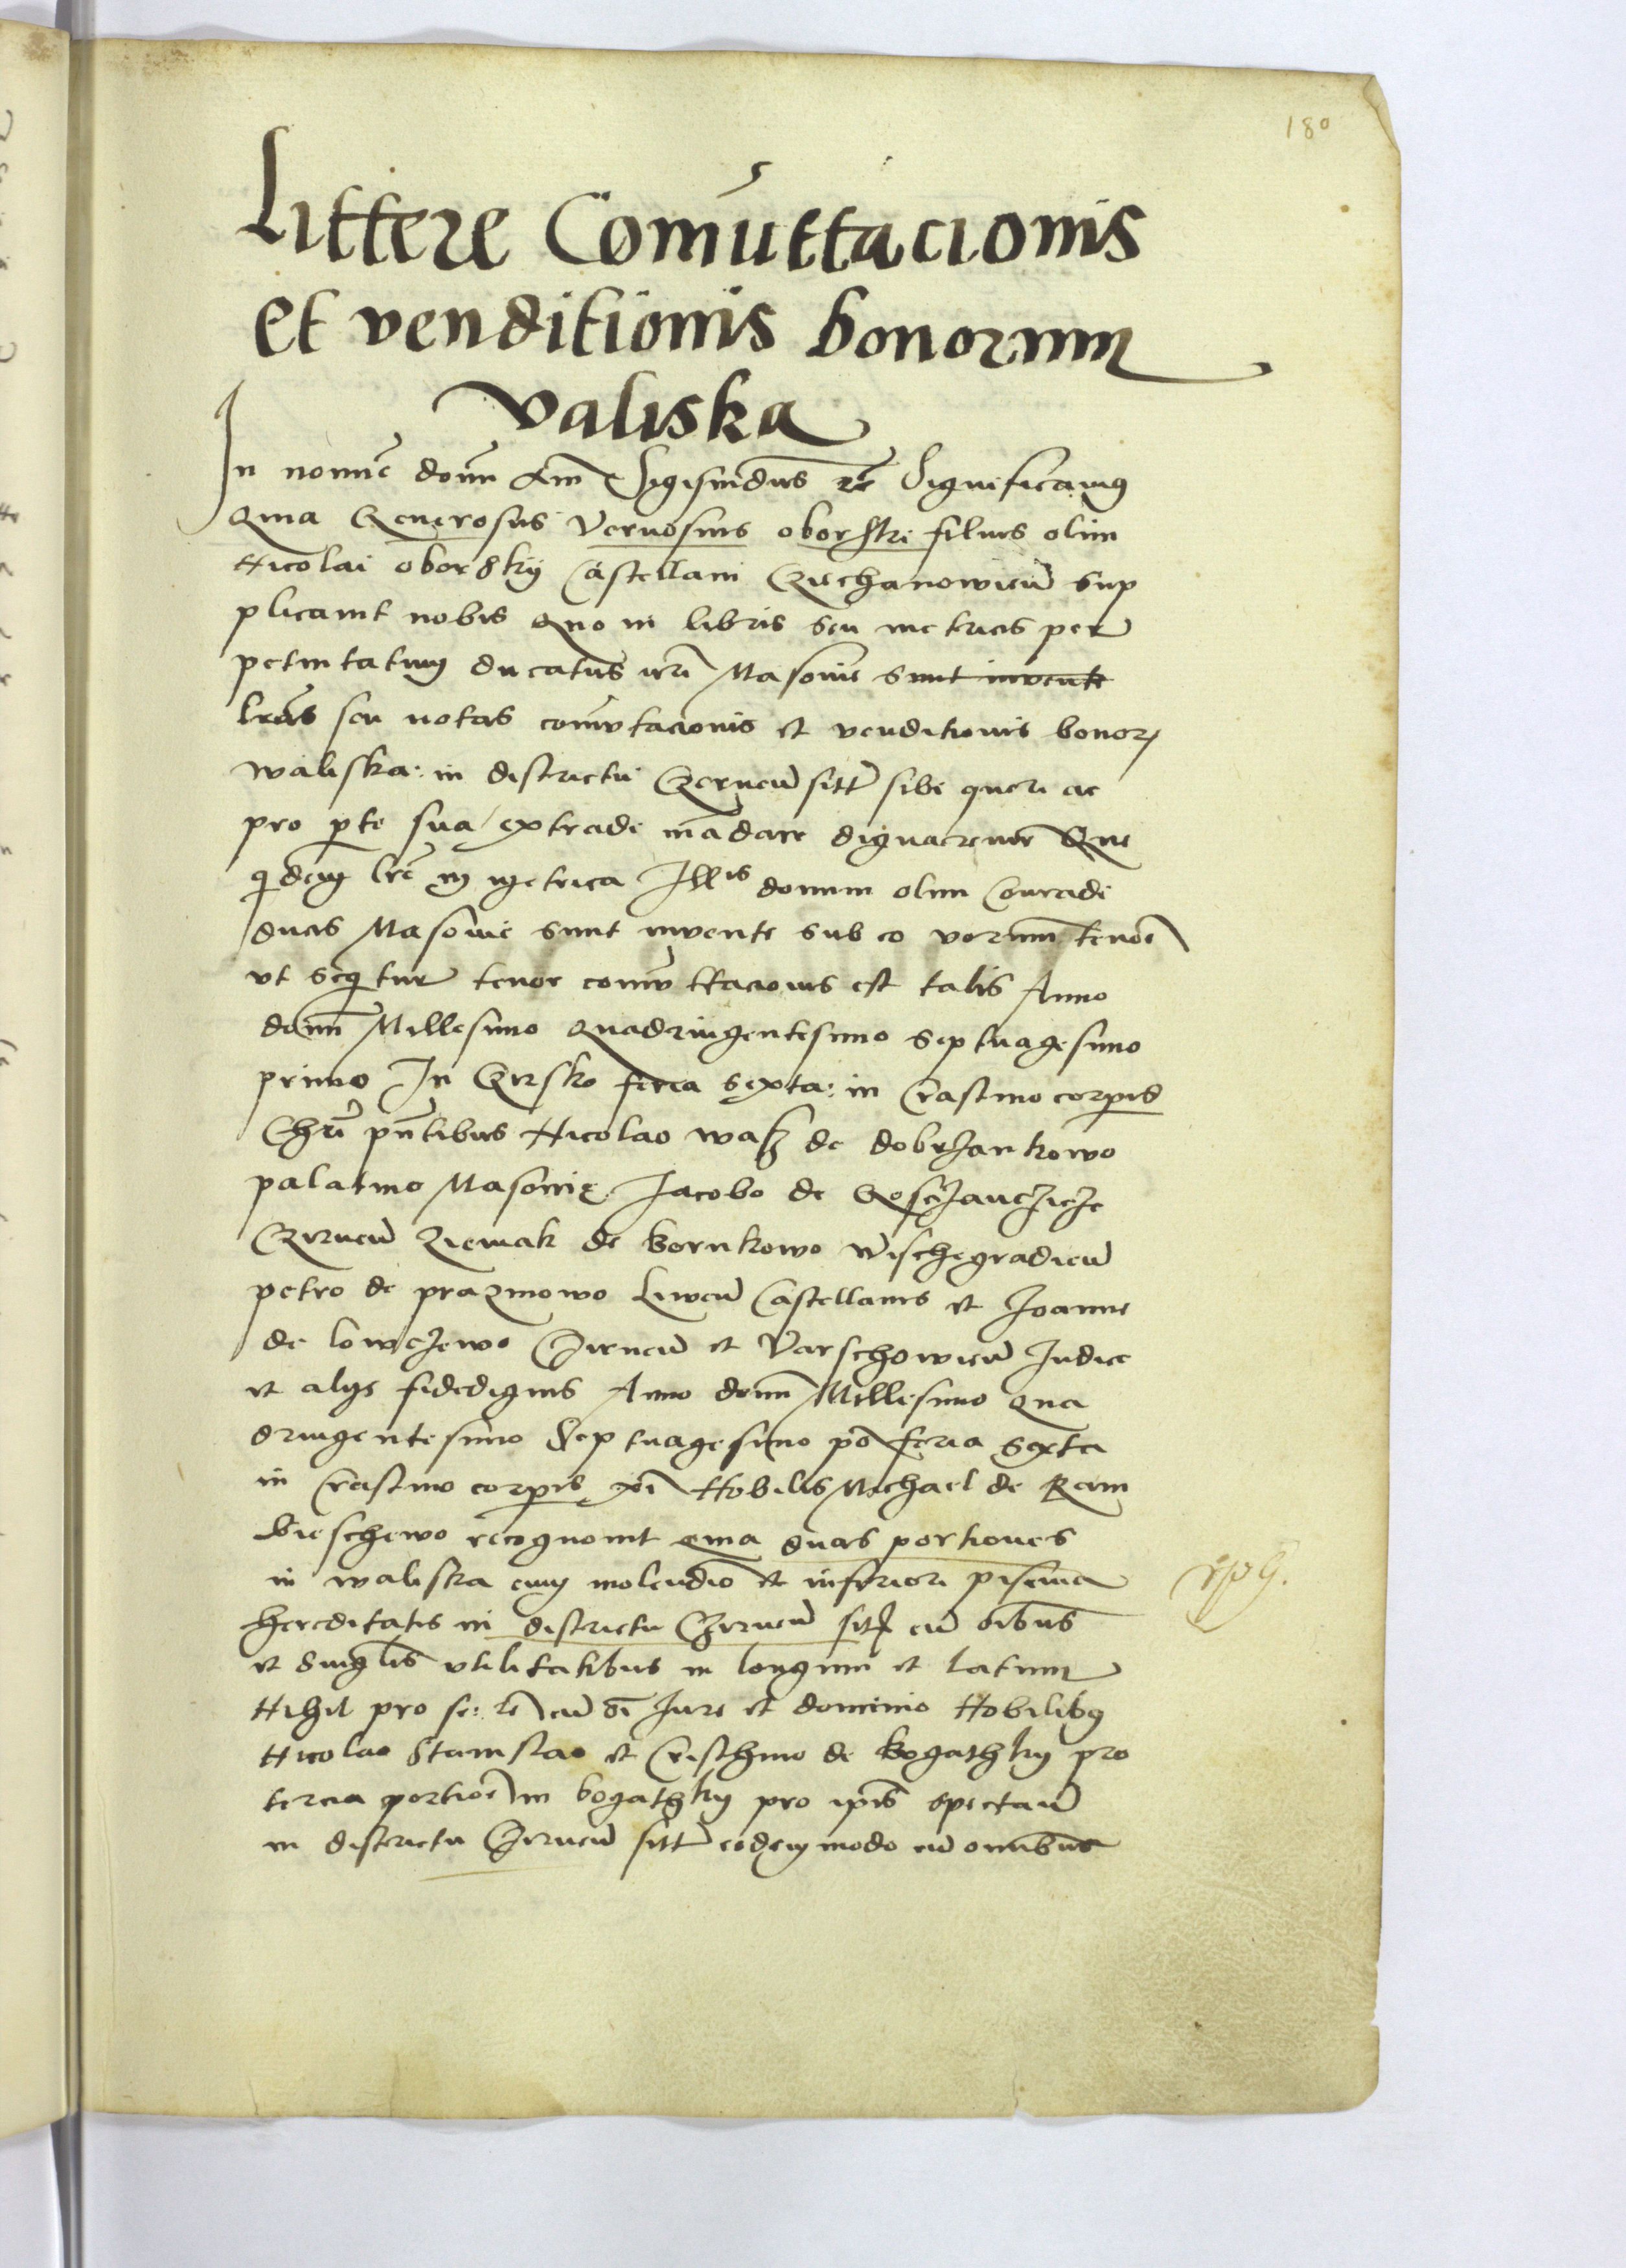 180
Littere Comuttacionis
et venditionis bonorum
Valiska
In nomīe domī Am̄ Sigismūdus rē Significamus
Quia Generosus Vernosius oborski filius olim
Nicolai oborskÿ Castellani Cziechanowieñ sup
plicavit nobis Quo in libris seu metricis per
petuitatum ducatus nrī Masovie sunt invente
lrās seu notas comutacionis et venditionis bonor
waliska: in districtu Czerneñ sitt sibi queri ac
pro pte sua extradi mādare dignaremur Que
qdem lrē in metrica Illis domini olim Conradi
ducis Masovie sunt invente sub eo verum tenoē
ut sequitur tenor comuttacionis est talis Anno
domī Millesimo Quadringentesimo septuagesimo
primo In Czirsko feria sexta: in Crastino corpis
Chrī pn̄tibus Nicolao wasz de dobrzankowo
palatino Masovie Jacobo de Gosczianczicze
Czirneñ Ziemak de bornkowo Wischegradieñ
petro de prazmowo Liweñ Castellanis et Joanne
de lowczewo Czirneñ et Varschowieñ Judice
et alijs fidedignis Anno domī Millesimo Qua
dringentesimo Septuagesimo pō feria sexta
in Crastino corpis xī Nobilis Michael de Ram
bieschewo recognovit quia duas portiones
in waliska cum molendiō et inferiori piscina
hereditatis in districtu Czirneñ sitt cū oībus
et singlis utilitatibus in longum et latum
Nihil pro se: rē cū oī Jure et dominio Nobilibus
Nicolao Stanislao et Cristhino de bogathky pro
tercia portioē in bogathky pro ipīs spectañ
in districtu Czirneñ sitt eodem modo cū omnibus